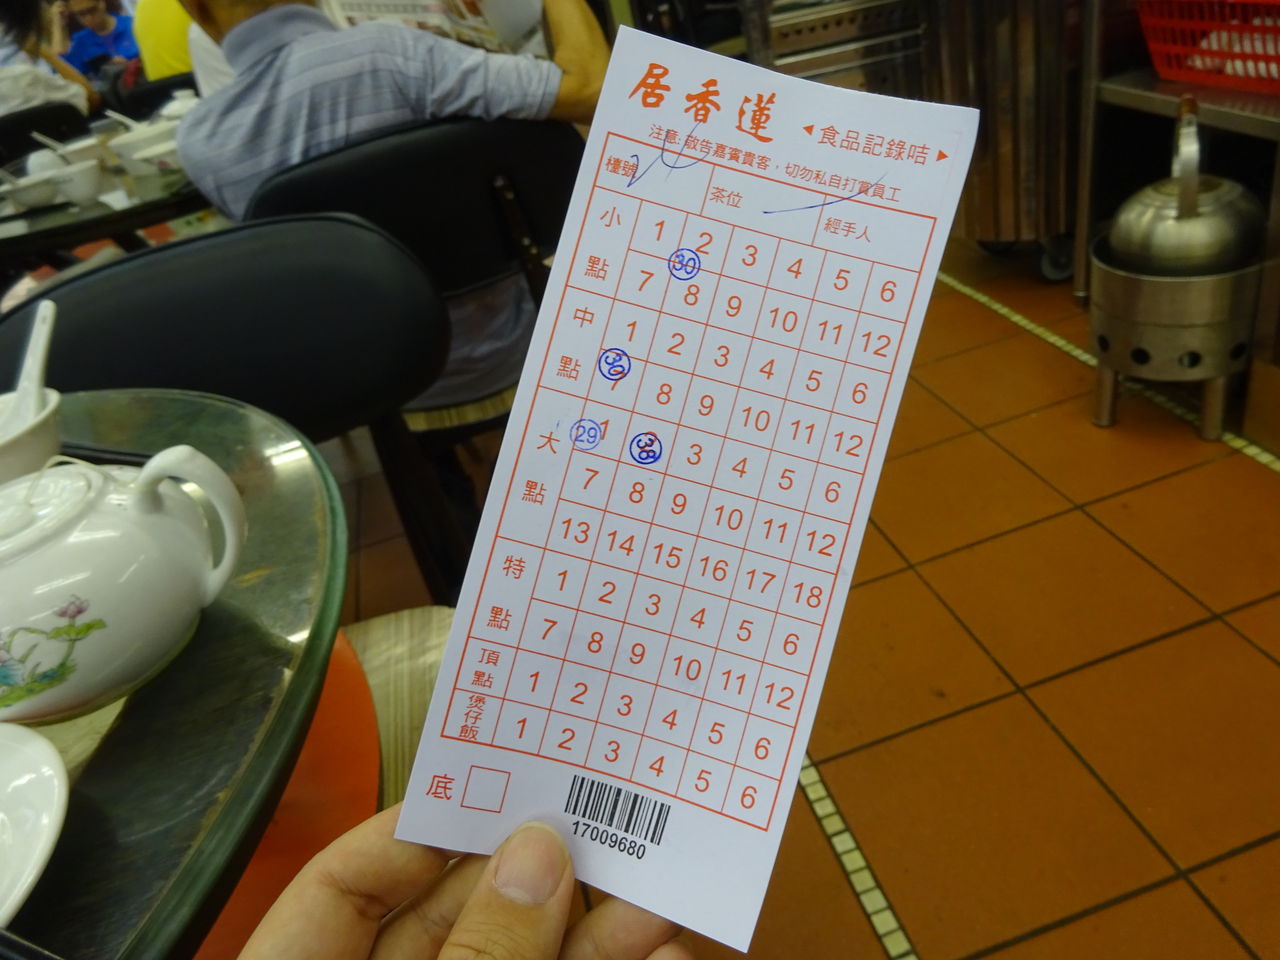 蓮香居
◀食品記錄咭▶
注意: 敬告嘉賓貴客，切勿私自打賞員工
檯號 茶位 經手人
小點 1 2 3 4 5 6
30
7 8 9 10 11 12
中點 1 2 3 4 5 6
7 8 9 10 11 12
大點 29 1 38 3 4 5 6
7 8 9 10 11 12
13 14 15 16 17 18
特點 1 2 3 4 5 6
7 8 9 10 11 12
頂點 1 2 3 4 5 6
煲仔飯 1 2 3 4 5 6
底
17009680